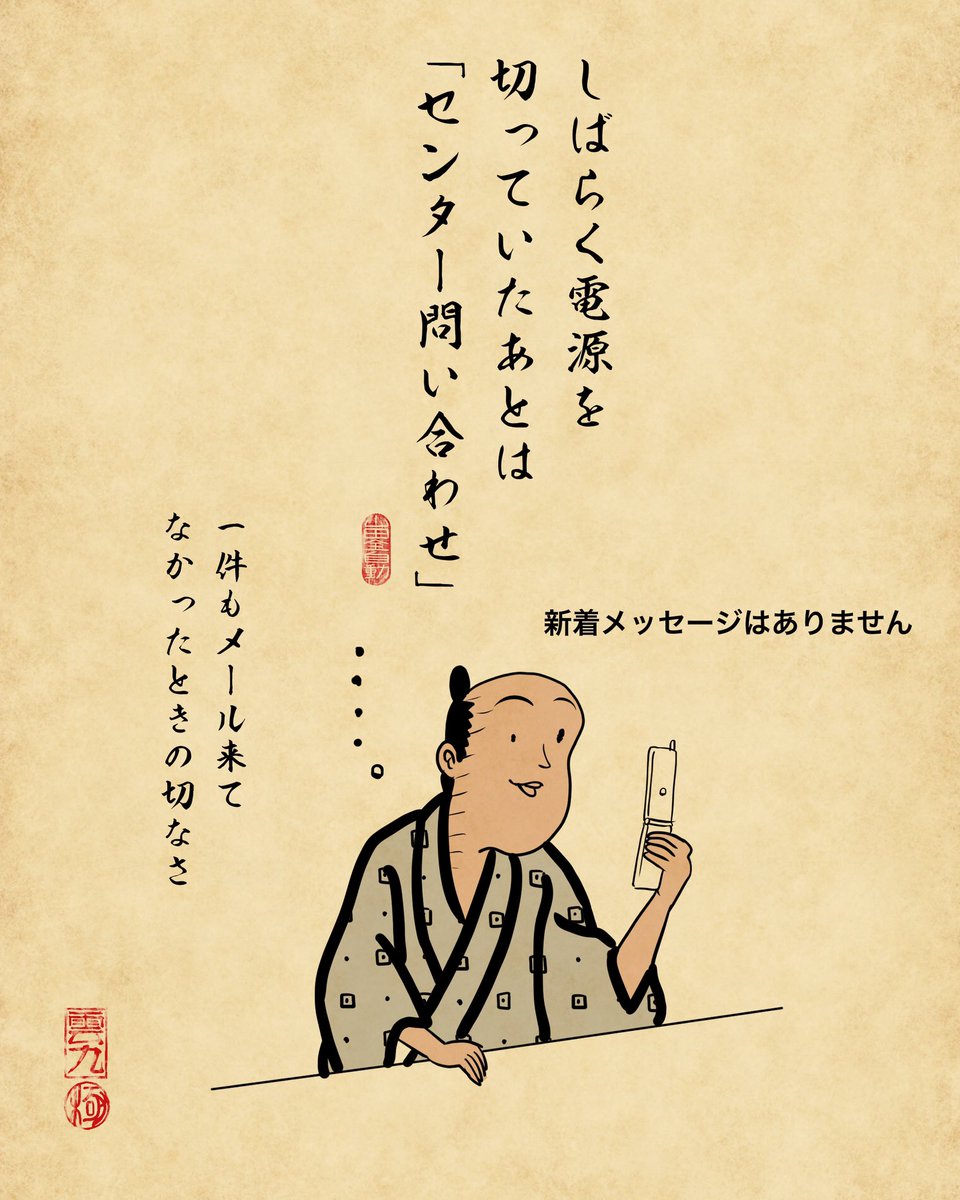 しばらく電源を
切っていたあとは
「センター問い合わせ」
新着メッセージはありません
一件もメール来て
なかったときの切なさ